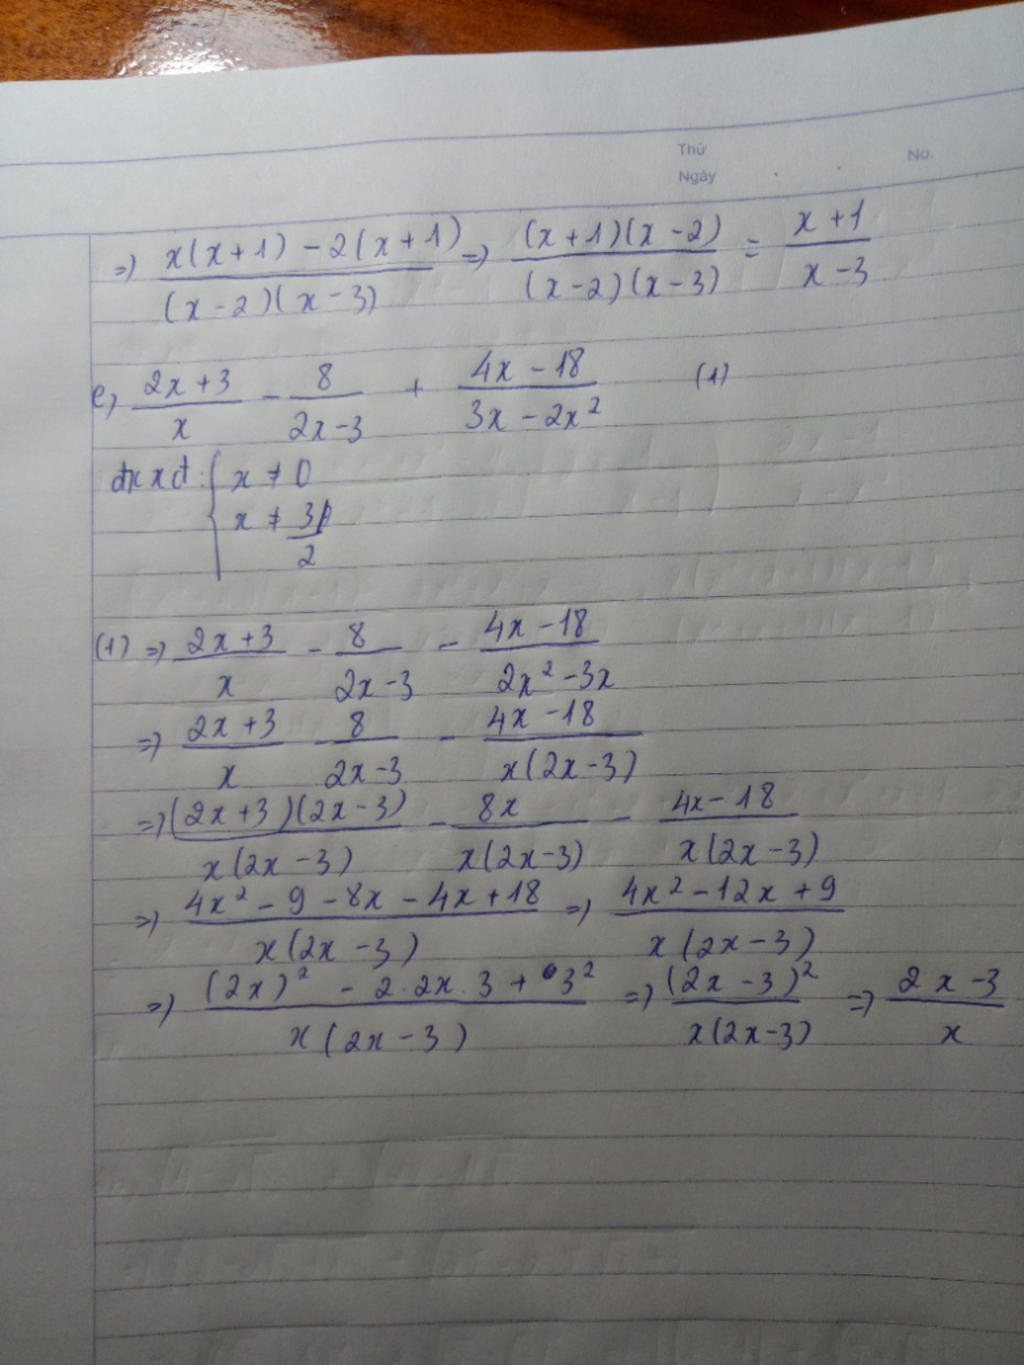 Thứ
Ngày
No.
=> x(x+1) - 2(x+1) / (x-2)(x-3) => (x+1)(x-2) / (x-2)(x-3) = x+1 / x-3
e, 2x+3 / x - 8 / 2x-3 + 4x-18 / 3x-2x² (1)
đkxđ: { x ≠ 0
x ≠ 3/2
(1) => 2x+3 / x - 8 / 2x-3 - 4x-18 / 2x²-3x
=> 2x+3 / x - 8 / 2x-3 - 4x-18 / x(2x-3)
=> (2x+3)(2x-3) / x(2x-3) - 8x / x(2x-3) - 4x-18 / x(2x-3)
=> 4x²-9-8x-4x+18 / x(2x-3) => 4x²-12x+9 / x(2x-3)
=> (2x)² - 2.2x.3 + 3² / x(2x-3) => (2x-3)² / x(2x-3) => 2x-3 / x